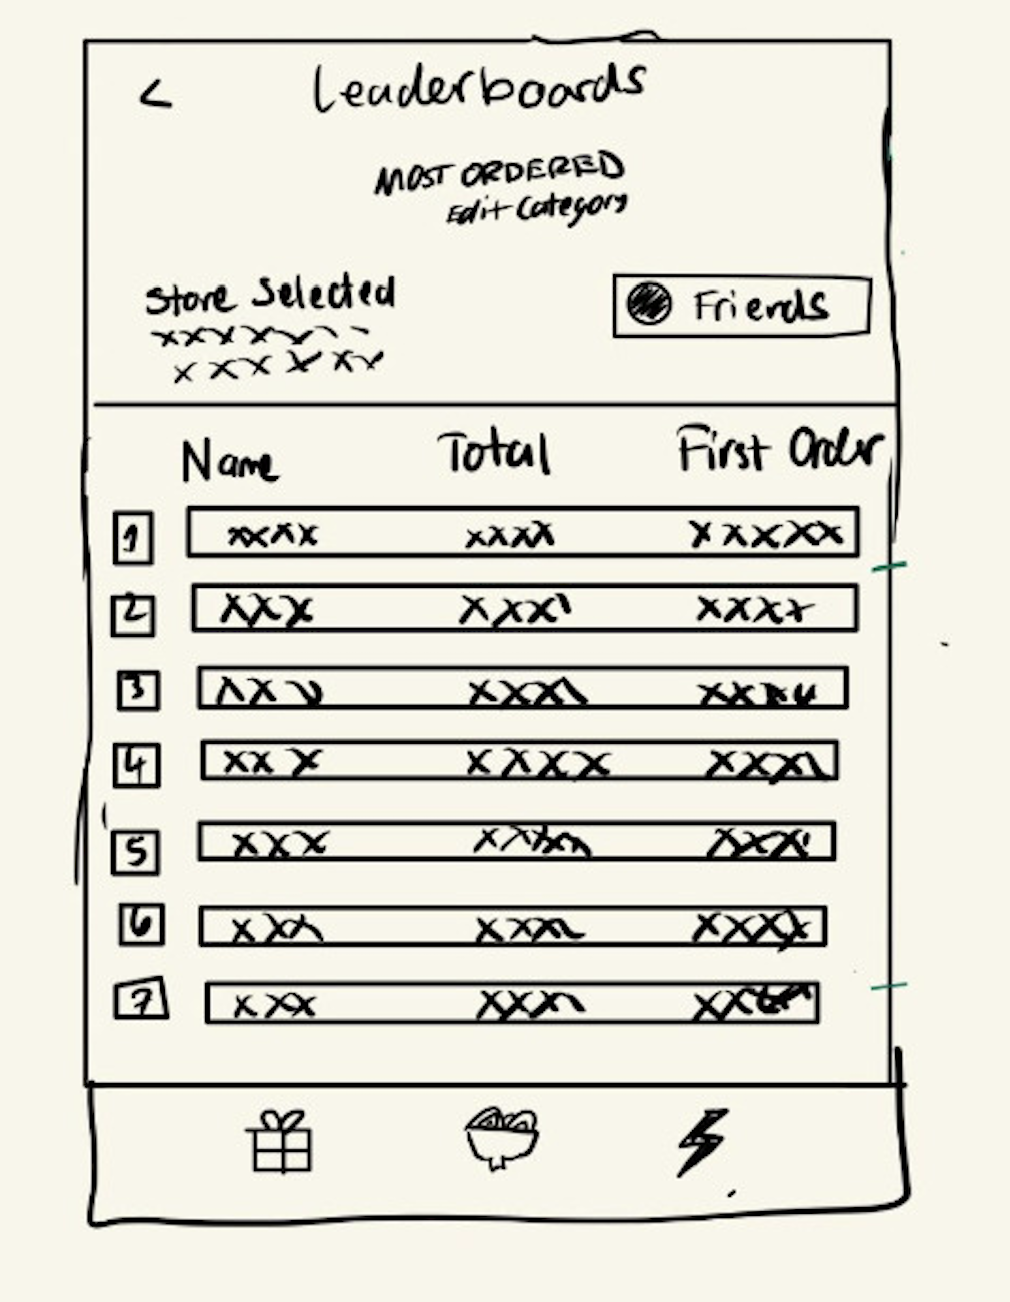 <
Leaderboards
MOST ORDERED
Edit Category
Store Selected
Friends
xxxxx
xxxxxx
Name Total First Order
1 xxxx xxxx xxxxx
2 xxx xxx xxxx
3 xx xxx xxx
4 xxx xxxx xxx
5 xxx xx xxx
6 xxx xxx xxxx
7 xxx xxx xx